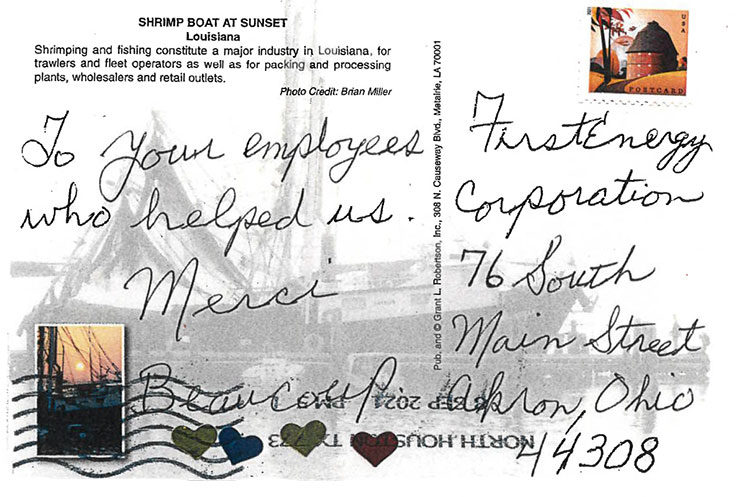 SHRIMP BOAT AT SUNSET
Louisiana
Shrimping and fishing constitute a major industry in Louisiana, for
trawlers and fleet operators as well as for packing and processing
plants, wholesalers and retail outlets.
Photo Credit: Brian Miller
To your employees
who helped us.
Merci
Beaucoup
Pub. and © Grant L. Robertson, Inc., 308 N. Causeway Blvd., Metairie, LA 70001
USA
POSTCARD
FirstEnergy
Corporation
76 South
Main Street
Akron, Ohio
44308
NORTH HOUSTON TX 773
SEP 2021 PM